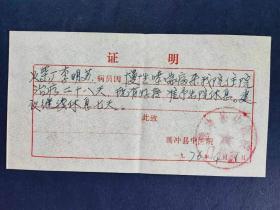 证 明
火柴厂李明芳 病员因 慢性哮喘病来我院住院
治疗二十八天，现有好转 准予出院休息。建
议继续休息七天。
此致
南冲县中医院